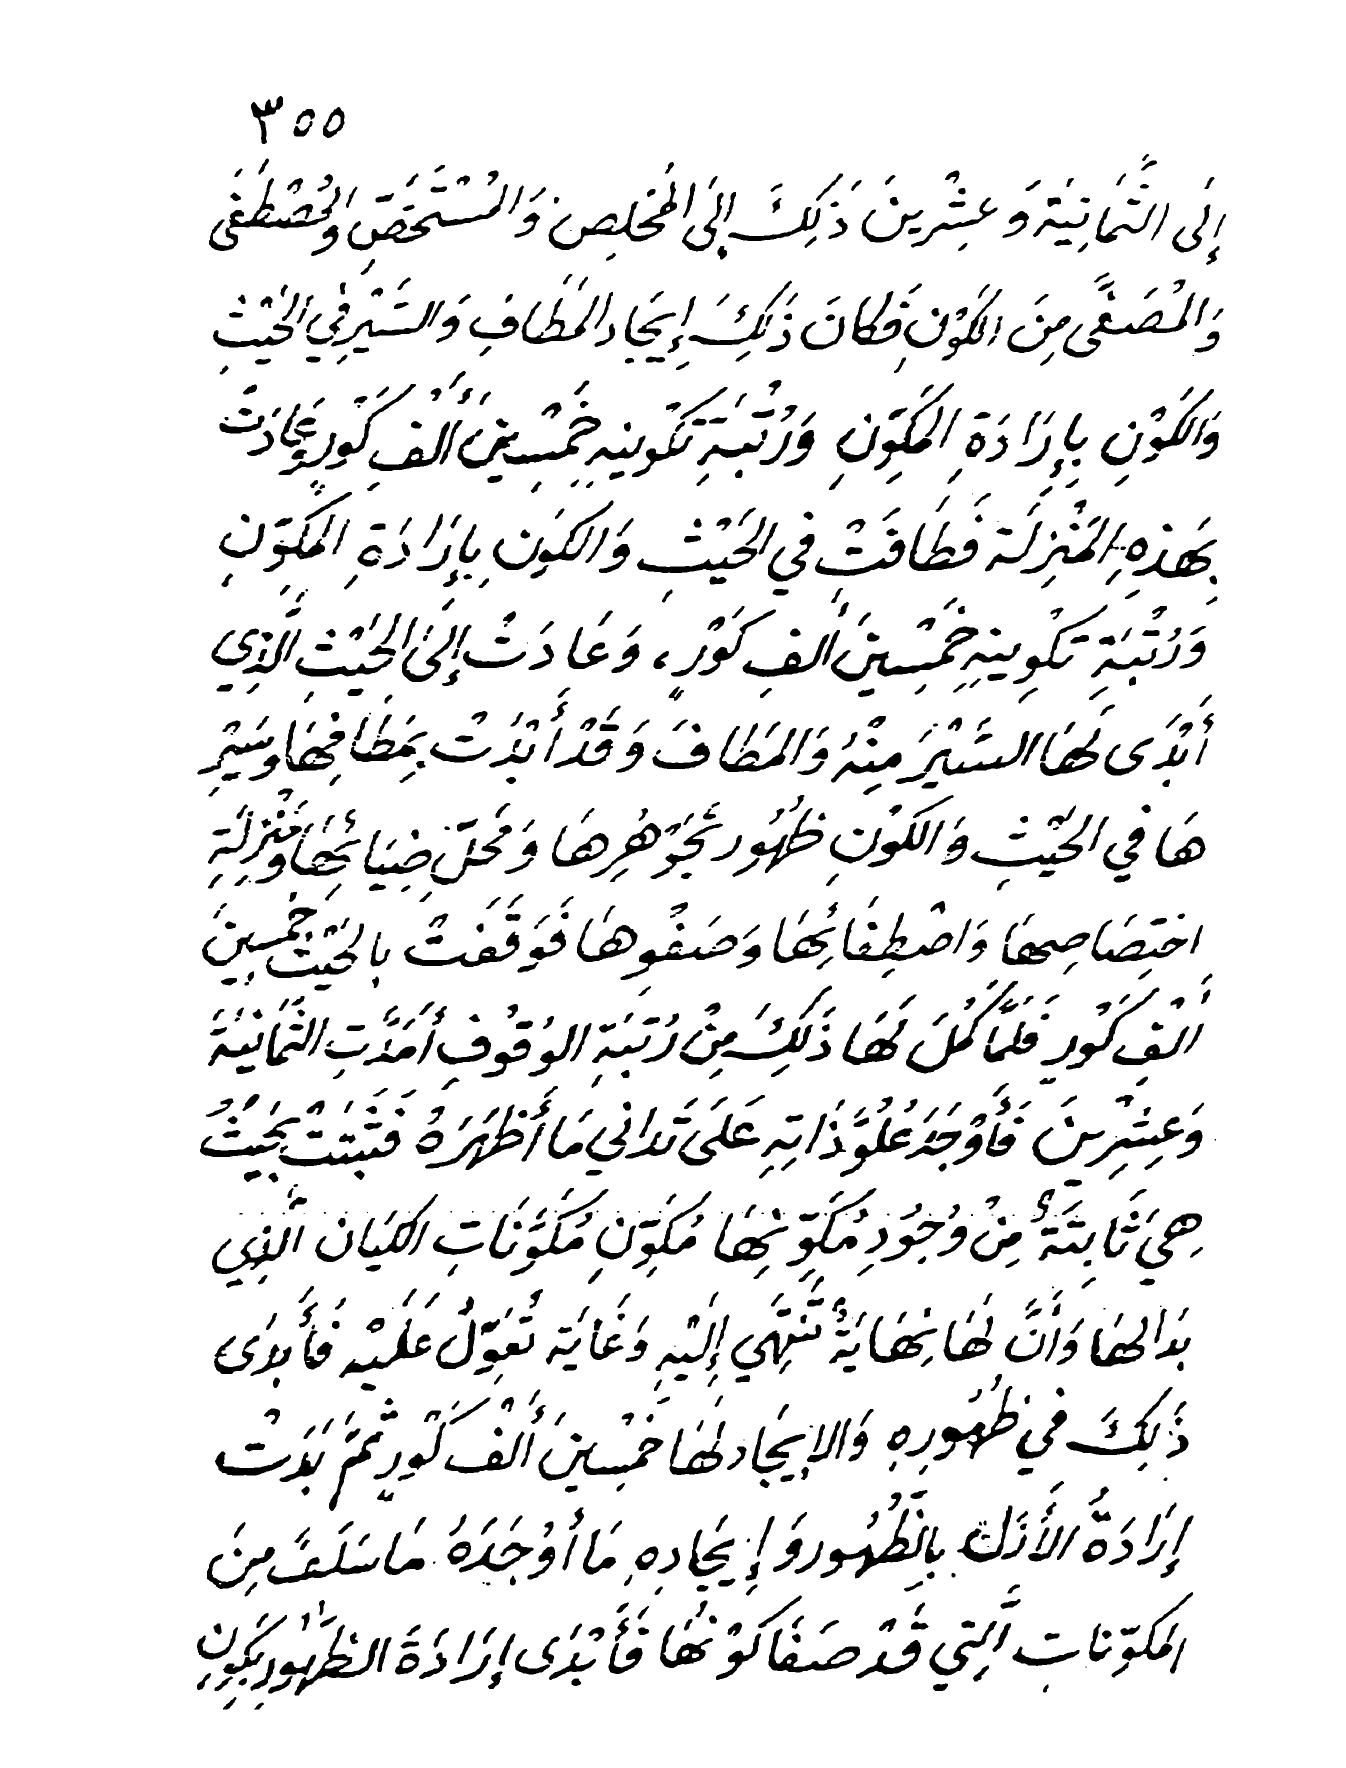 ٣٥٥
إِلَى الثَّمَانِيَة وَعِشْرِينَ ذَلِكَ إِلَى المُخلِصِ وَالمُسْتَخَصِّ وَالمُصْطَفَى
وَالمُصَفَّى مِنَ الكَوْنِ فَكَانَ ذَلِكَ إِيجَادَ المَطَافِ وَالسَّيْرِ فِي الحَيْثِ
وَالكَوْنِ بِإِرَادَةِ المُكَوِّنِ وَرُتْبَةِ تَكْوِينِهِ خَمْسِينَ أَلْفِ كَوْرٍ وَعَادَتْ
بِهَذِهِ المَنْزِلَة فَطَافَتْ فِي الحَيْثِ وَالكَوْنِ بِإِرَادَةِ المُكَوِّنِ
وَرُتْبَةِ تَكْوِينِهِ خَمْسِينَ أَلفِ كَوْرٍ، وَعَادَتْ إِلَى الحَيْثِ الَّذِي
أَبْدَى لَهَا السَّيْرَ مِنْهُ وَالمَطَافَ وَقَدْ أَبْدَتْ بِمَطَافِهَا وَسَيْرِ
هَا فِي الحَيْثِ وَالكَوْنِ ظُهُورَ جَوْهَرِهَا وَمَحَلَّ ضِيَائِهَا وَمَنْزِلَةِ
اختِصَاصِهَا وَاصْطِفَائِهَا وَصَفْوِهَا فَوَقَفَتْ بِالحَيْثِ خَمْسِينَ
أَلْفِ كَوْرٍ فَلَمَّا كَمُلَ لَهَا ذَلِكَ مِنْ رُتْبَةِ الوُقُوفِ أَمَدَّتِ الثَّمَانِيَةَ
وَعِشْرِينَ فَأَوْجَدَ عُلُوَّ ذَاتِهِ عَلَى تَدَانِي مَا أَظْهَرَهُ فَثَبَتَتْ بِحَيْثُ
هِيَ ثَابِتَةٌ مِنْ وُجُودِ مُكَوِّنِهَا مُكَوِّنِ مُكَوَّنَاتِ الكَيَانِ الَّذِي
بَدَا لَهَا وَأَنَّ لَهَا نِهَايَةً تَنْتَهِي إِلَيْهِ وَغَايَة تُعَوِّلُ عَلَيْهِ فَأَبدَى
ذَلِكَ فِي ظُهُورِهِ وَالإِيجَادِ لَهَا خَمْسِينَ أَلْفَ كَوْرٍ ثُمَّ بَدَتْ
إِرَادَةُ الأَزَلِ بِالظُّهُورِ وَإِيجَادِهِ مَا أَوْجَدَهُ مَا سَلَفَ مِنَ
المُكَوِّنَاتِ الَّتِي قَدْ صَفَا كَوْنُهَا فَأَبْدَى إِرَادَةَ الظُّهُورِ بِكَوْنِ